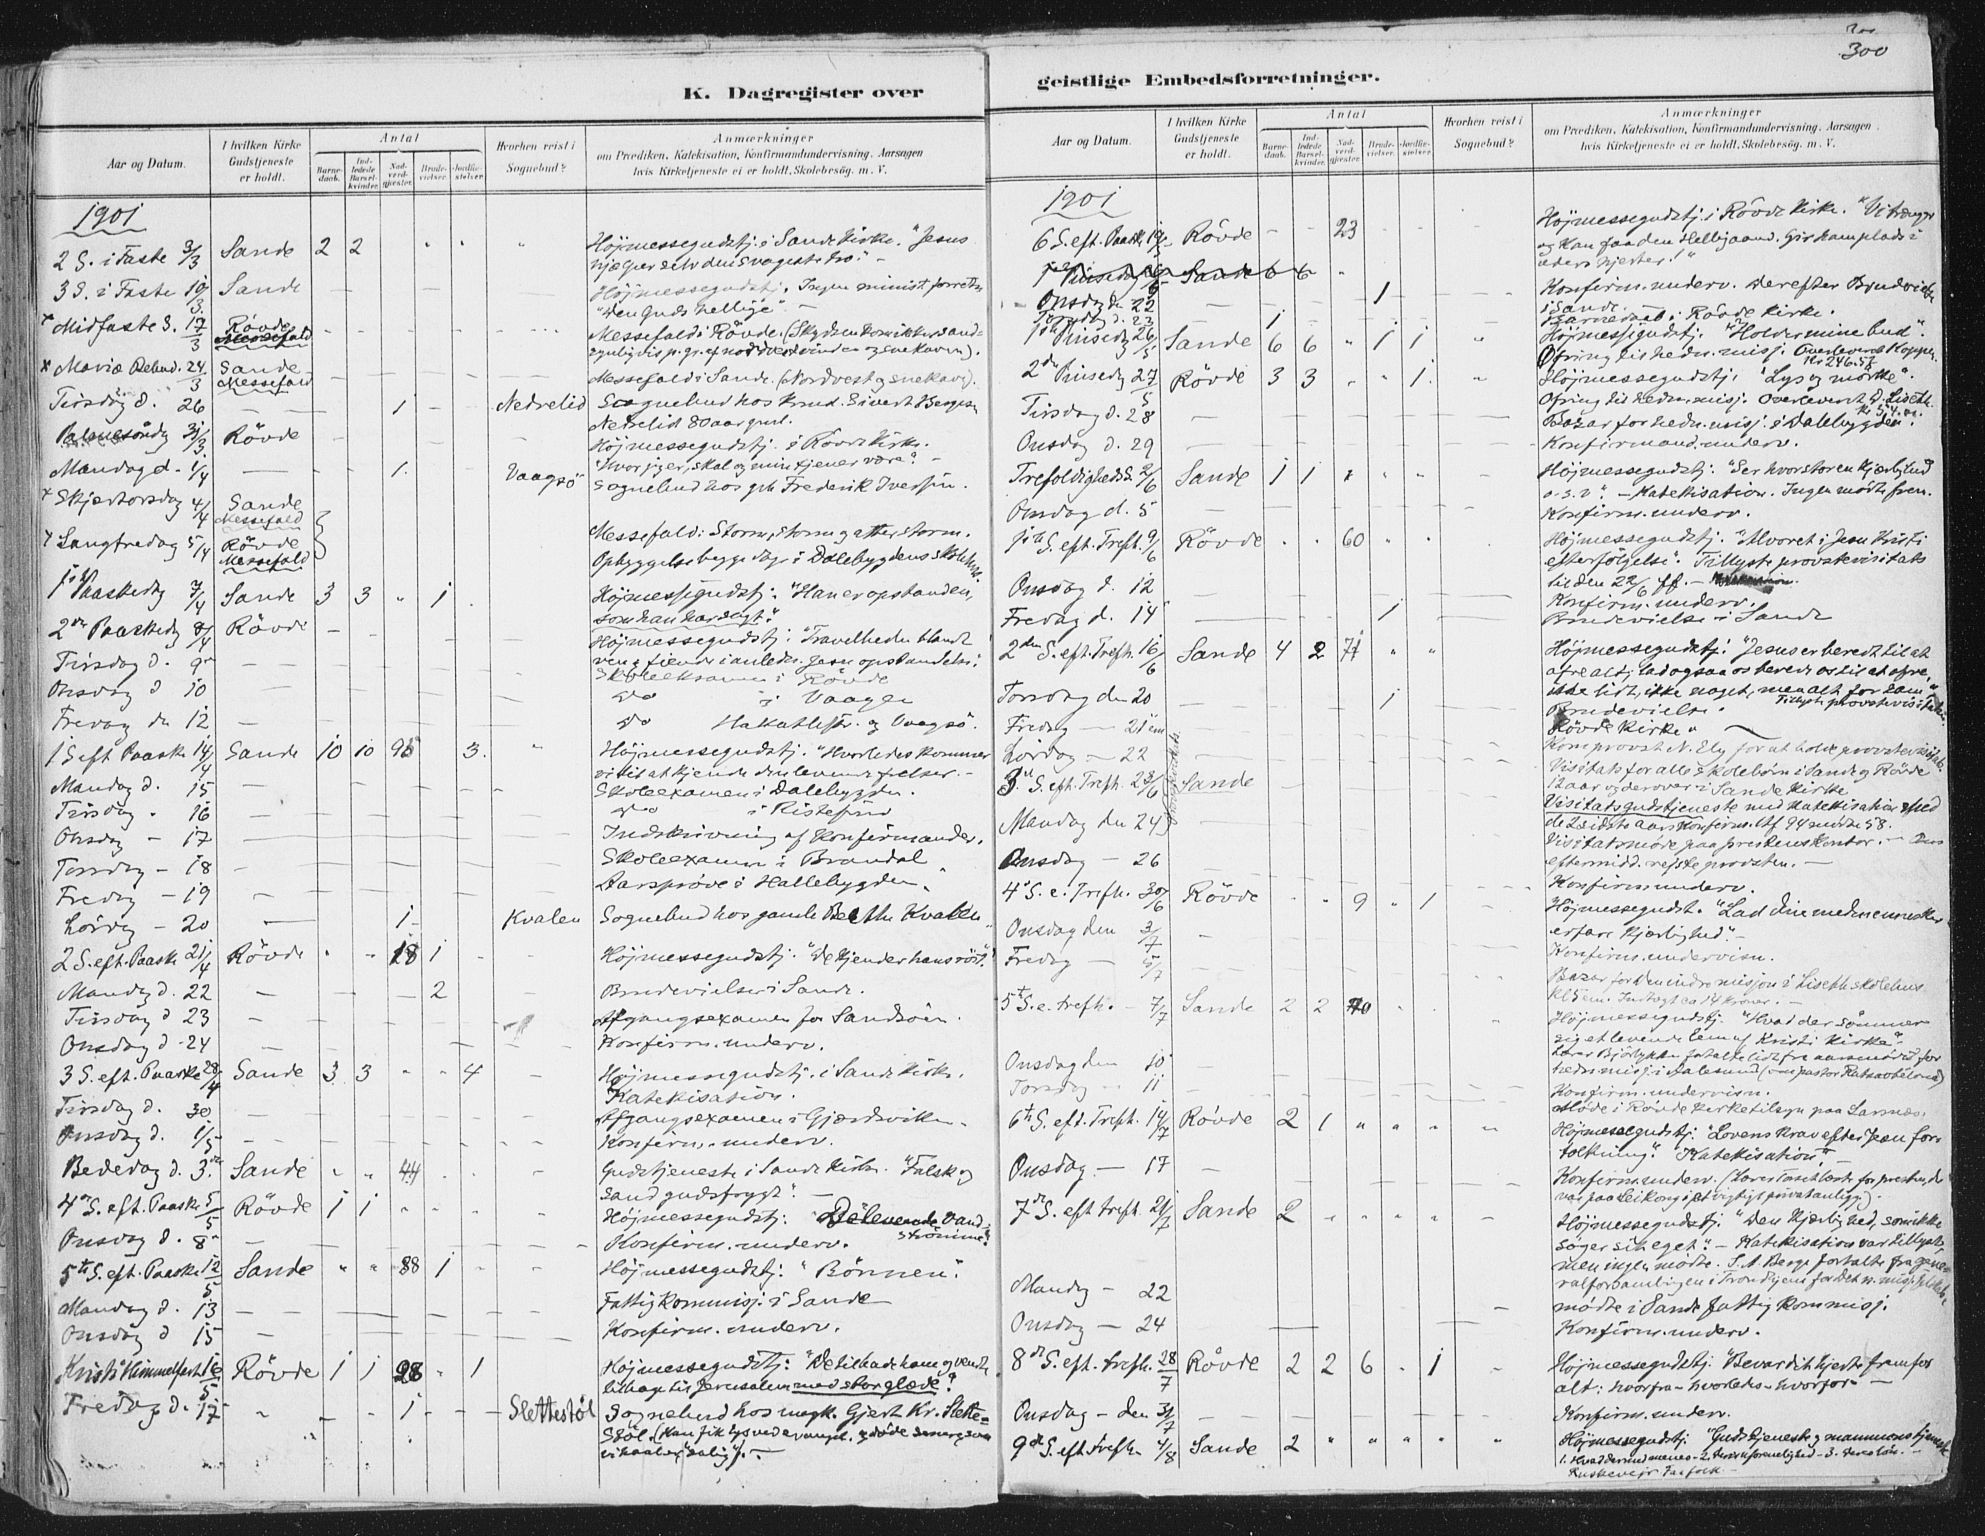 300
K. Dagregister over
geistlige Embedsforretninger.
Aar og Datum.
I hvilken Kirke Gudstjeneste er holdt.
Antal
Barnedaab.
Indledede Barselkvinder.
Nadverdgjester.
Brudevielser.
Jordfæstelser.
Hvorhen reist i Sognebud?
Anmærkninger
om Prædiken, Katekisation, Konfirmandundervisning. Aarsagen
hvis Kirketjeneste ei er holdt. Skolebesög. m. V.
1901
2 S. i Faste 3/3 Sande 2 2 Højmessegudstj. i Sande Kirke. "Jesus
hjælper selv den svageste tro." -
3 S. i Faste 10/3 Sande Højmessegudstj. Ingen minist. forretn.
"Den Guds hellige" -
Midfaste S. 17/3 Røvde Messefald Messefald i Røvde.
Mariæ Bebud. 24/3 Sande Messefald Messefald i Sande. (Nordvest og snekave).
Tirsdag d. 26 1 Nedrelid Sognebud hos Knud Sivert Berges.
Nedrelid 80 aar gml.
Palmesøndg 31/3 Røvde Højmessegudstj. i Røvde Kirke.
"Hvor jeg er, skal og min tjener være." -
Mandag d. 1/4 1 Vaagsø Sognebud hos gub. Frederik Iversen.
Skjertorsdag 4/4 Sande Messefald
Langfredag 5/4 Røvde Messefald Messefald: Storm, storm og atter storm.
Opbyggelse begge dage i Dalebygdens skolehus.
1ste Paaskedg 7/4 Sande 3 3 1 Højmessegudstj. "Han er opstanden,
som han har sagt."
2den Paaskedg 8/4 Røvde Højmessegudstj. "Travelheden blandt
ven og fiende i anledn. Jesu opstandelse."
Tirsdag d. 9 Skoleeksamen i Røvde
Onsdag d 10 do i Vaagen
Fredag den 12 do Hakallestr. og Vaagsø.
1 S eft Paaske 14/4 Sande 10 10 95 3 Højmessegudstj. "Hvorledes kommer
vi til at kjende den levende frelser. -
Mandag d. 15 Skoleexamen i Dalebygden.
Tirsdag - 16 do i Ristesund
Onsdag - 17 Indskrivning af Konfirmander.
Torsdag - 18 Skoleexamen i Brandal
Fredag - 19 Aarsprøve i Hallebygden.
Lørdag - 20 1 Kvalen Sognebud hos gamle Berthe Kvalen
2 S. eft. Paaske 21/4 Røvde 18 1 Højmessegudstj. "De kjender hans røst."
Mandag d. 22 2 Brudevielser i Sande.
Tirsdag d 23 Afgangsexamen for Sandsøen.
Onsdag d 24 Konfirm. underv.
3 S. eft. Paaske 28/4 Sande 3 3 4 Højmessegudstj. i Sande Kirke.
Katekisation.
Tirsdag d. 30 Afgangsexamen i Gjærdsviken.
Onsdag d. 1/5 Konfirm. underv.
Bededag d. 3die Sande 44 Gudstjeneste i Sande Kirke. "Falsk og
sand gudsfrygt." -
4de S. eft. Paaske 5/5 Røvde 1 1 Højmessegudstj: "De levende vandstrømme."
Onsdag d. 8 Konfirm. underv.
5te S. eft. Paaske 12/5 Sande 88 1 Højmessegudstj: "Bønnen".
Mandag d. 13 Fattigkommisj. i Sande
Onsdag d 15 Konfirm. underv.
Kristi Himmelfart 16/5 Røvde 1 1 28 1 Højmessegudstj: "De tilbad ham og vendte
tilbage til Jerusalem med stor glæde."
Fredag d. 17 1 Slettestøl Sognebud hos ungk. Gjert Kr. Slette=
støl.
Aar og Datum.
I hvilken Kirke Gudstjeneste er holdt.
Antal
Barnedaab.
Indledede Barselkvinder.
Nadverdgjester.
Brudevielser.
Jordfæstelser.
Hvorhen reist i Sognebud?
Anmærkninger
om Prædiken, Katekisation, Konfirmandundervisning. Aarsagen
hvis Kirketjeneste ei er holdt. Skolebesög. m. V.
1901
6 S. eft. Paaske 19/5 Røvde 23 Højmessegudstj. i Røvde Kirke. "Vi trænger
og kan faa den Helligaand. Gir ham plads i
eders hjerter!"
1ste Pinsedag Sande 6 6
Onsdag d. 22 1 Konfirm. underv. Derefter Brudvielse
i Sande.
Torsdag d. 23 1 Barnedaab i Røvde Kirke.
1ste Pinsedg 26/5 Sande 6 6 1 1 Højmessegudstj: "Holder mine bud".
Ofring til hedn. misj.
Kr 246.57
2den Pinsedg 27/5 Røvde 3 3 1 Højmessegudstj: "Lys og mørke".
Ofring til hedn. misj. Overleveret
Tirsdag d. 28 Bazar for hedn. misj. i Dalebygden.
Onsdag d. 29 Konfirmand. underv.
Trefoldighedsd. 2/6 Sande 1 1 Højmessegudstj: "Ser hvor stor en kjærlighed
o.s.v." - Katekisation. Ingen mødte frem.
Onsdag d. 5 Konfirm. underv.
1ste S. eft. Trefh. 9/6 Røvde 60 Højmessegudstj. "Alvoret i Jesu Kristi
efterfølgelse". Tillyste provstevisitats
til den 22/6 ff. -
Onsdag d. 12 Konfirm. underv.
Fredag d. 14 1 Brudevielse i Sande
2den S. eft. Trefh. 16/6 Sande 4 2 71 Højmessegudstj: "Jesus er beredt til at
ofre alt; lad ogsaa os berede os til at ofre,
ikke lidt, ikke noget, men alt for ham"
Tillyste provstevisitatsen
Torsdag den 20 1 Brudevielse.
Røvde Kirke
Fredag - 21 em Kom provst N. Ely for at holde provstevisitats.
Lørdag - 22 Visitats for alle skolebørn i Sande og Røvde
12 aar og derover i Sande Kirke
3die S. eft. Trefh. 23/6 Sande Visitatsgudstjeneste med Katekisation
de 2 sidste aars Konfirm. Af 94 mødte 58.
Mandag den 24 Visitatsmøde paa prestens Kontor. -
eftermidd. rejste provsten. -
Onsdag - 26 Konfirm. underv.
4de S. e. Trefh. 30/6 Røvde 9 1 Højmessegudst. "Lad dine medmennesker
erfare kjærlighed". -
Onsdag den 3/7 Konfirm. undervisn.
Fredag - 5/7 Bazar for den indre misjon i Liseth skolehus
Kl 5 em. Indtægt ca 14 kroner. -
5te S. e. trefh. - 7/7 Sande 2 2 40 Højmessegudstj. "Hvad der sømmer
sig et levende lem af Kristi Kirke".
Onsdag den 10 Konfirm. undervisn.
Torsdag - 11 Møde i Røvde Kirketilsyn paa Larsnæs.
6te S. eft. Trefh. 14/7 Røvde 2 1 Højmessegudstj: "Lovens krav efter Jesu for-
tolkning." "Katekisation" -
Onsdag - 17 Konfirm. underv.
7de S. eft trefh. 21/7 Sande 2 Højmessegudstj: "Den kjærlighed, som ikke
søger sit eget." - Katekisation var tillyst,
men ingen mødte. S. A. Berge fortalte fra gene-
ralforsamlingen i Trondhjem
Mandag - 22 mødte i Sande fattigkommisj.
Onsdag - 24 Konfirm. underv.
8de S. eft. trefh. 28/7 Røvde 2 2 6 1 Højmessegudstj: "Bevar dit hjerte fremfor
alt: hvorfra - hvorledes - hvorfor -
Onsdag - den 31/7 Konfirm. underv.
9de S. eft trefh. 4/8 Sande 2 Højmessegudstj: "Gudstjeneste og mammonstjeneste
1. Hvad dermed menes - 2. deres uforenelighed - 3. deres løn. -
Ruskeveir Faa folk -